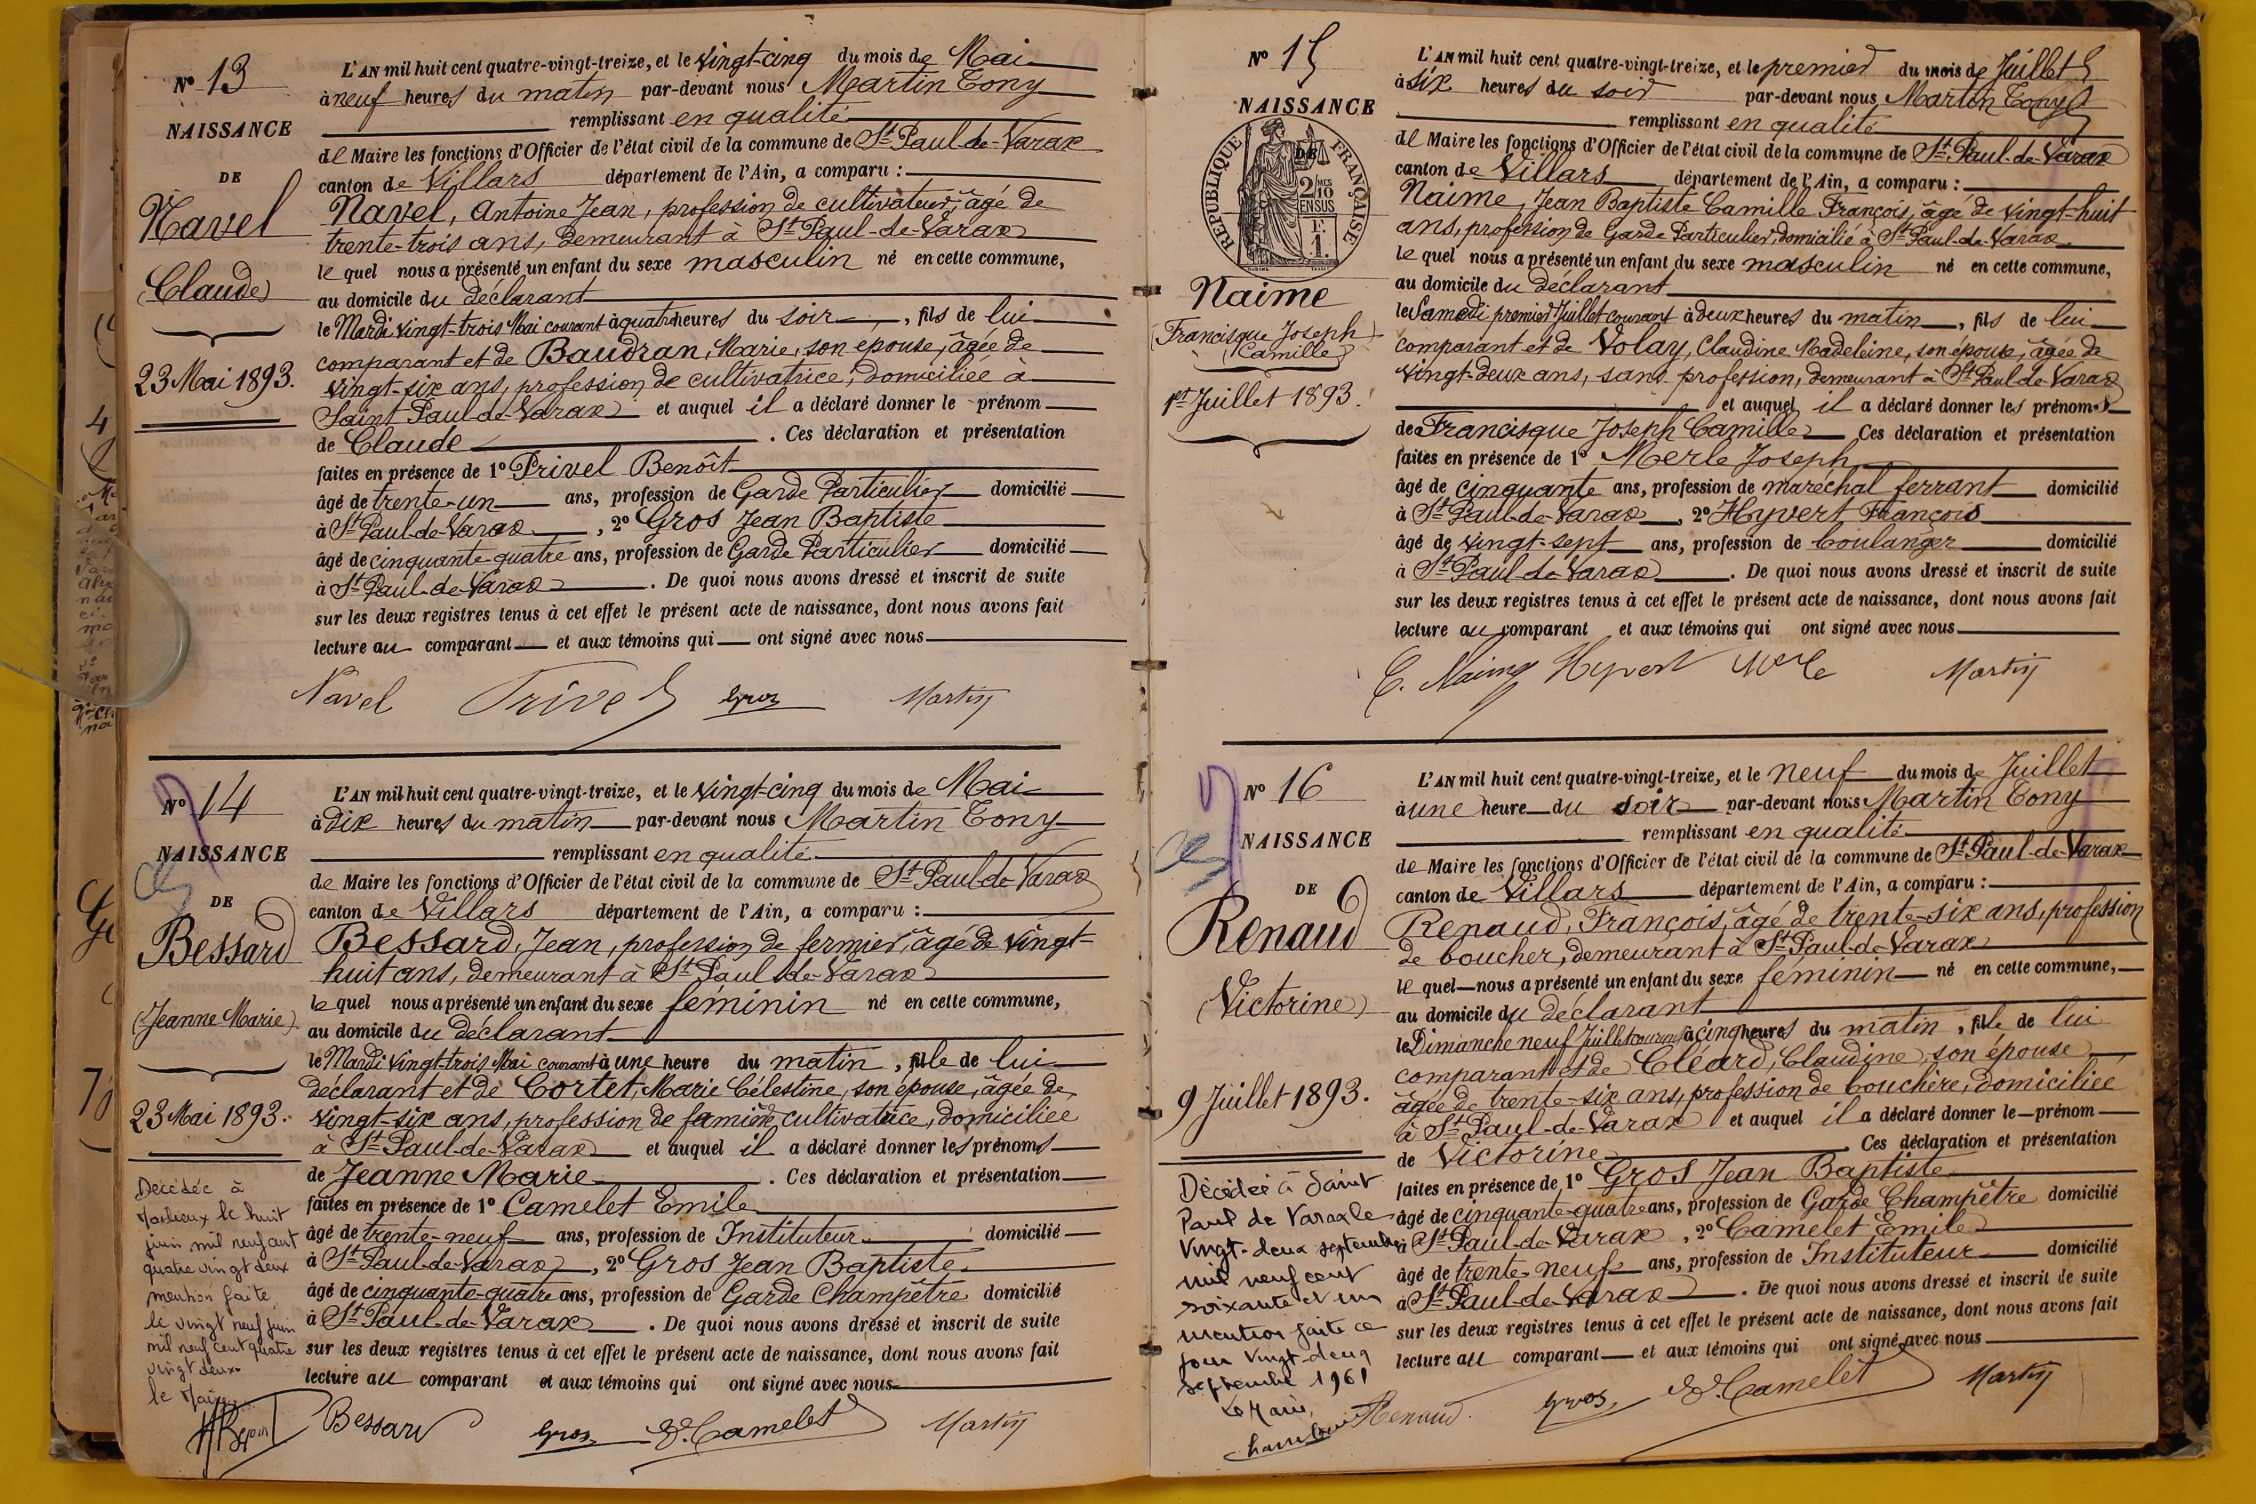 N° 13
NAISSANCE
DE
Navel
(Claude)
23 Mai 1893.
L'AN mil huit cent quatre-vingt-treize, et le vingt-cinq du mois de Mai
à neuf heures du matin par-devant nous Martin Tony
remplissant en qualité
de Maire les fonctions d'Officier de l'état civil de la commune de St Paul-de-Varax
canton de Villars département de l'Ain, a comparu :
Navel, Antoine Jean, profession de cultivateur, âgé de
trente-trois ans, demeurant à St Paul-de-Varax
le quel nous a présenté un enfant du sexe masculin né en cette commune,
au domicile du déclarant
le Mardi vingt-trois Mai courant à quatre heures du soir, fils de lui
comparant et de Baudran, Marie, son epouse, âgée de
vingt-six ans, profession de cultivatrice, domiciliée à
Saint Paul-de-Varax et auquel il a déclaré donner le prénom
de Claude. Ces déclaration et présentation
faites en présence de 1° Privel Benôit
âgé de trente-un ans, profession de Garde Particulier domicilié
à St Paul-de-Varax, 2° Gros Jean Baptiste
âgé de cinquante-quatre ans, profession de Garde Particulier domicilié
à St Paul-de-Varax. De quoi nous avons dressé et inscrit de suite
sur les deux registres tenus à cet effet le présent acte de naissance, dont nous avons fait
lecture au comparant et aux témoins qui ont signé avec nous
Navel Privel Gros Martin
N° 14
NAISSANCE
DE
Bessard
(Jeanne Marie)
23 Mai 1893.
Décédée à
Marlieux le huit
juin mil neuf cent
quatre vingt deux
mention faite
le vingt neuf juin
mil neuf cent quatre
vingt deux
le Maire
L'AN mil huit cent quatre-vingt-treize, et le vingt-cinq du mois de Mai
à dix heures du matin par-devant nous Martin Tony
remplissant en qualité
de Maire les fonctions d'Officier de l'état civil de la commune de St Paul-de-Varax
canton de Villars département de l'Ain, a comparu :
Bessard, Jean, profession de fermier, âgé de vingt-
huit ans, demeurant à St Paul-de-Varax
le quel nous a présenté un enfant du sexe féminin né en cette commune,
au domicile du déclarant
le Mardi vingt-trois Mai courant à une heure du matin, fille de lui
déclarant et de Cortet, Marie Célestine, son épouse, âgée de
vingt-six ans, profession de cultivatrice, domiciliée
à St Paul-de-Varax et auquel il a déclaré donner les prénoms
de Jeanne Marie. Ces déclaration et présentation
faites en présence de 1° Camelet Emile
âgé de trente-neuf ans, profession de Instituteur domicilié
à St Paul-de-Varax, 2° Gros Jean Baptiste
âgé de cinquante-quatre ans, profession de Garde Champêtre domicilié
à St Paul-de-Varax. De quoi nous avons dressé et inscrit de suite
sur les deux registres tenus à cet effet le présent acte de naissance, dont nous avons fait
lecture au comparant et aux témoins qui ont signé avec nous
Bessard Gros E. Camelet Martin
N° 15
NAISSANCE
DE
RÉPUBLIQUE FRANÇAISE
2 MES 10 EN SUS
1F.
Naime
(Francisque Joseph
Camille)
1er Juillet 1893.
L'AN mil huit cent quatre-vingt-treize, et le premier du mois de Juillet
à six heures du soir par-devant nous Martin Tony
remplissant en qualité
de Maire les fonctions d'Officier de l'état civil de la commune de St Paul-de-Varax
canton de Villars département de l'Ain, a comparu :
Naime, Jean Baptiste Camille François, âgé de vingt-huit
ans, profession de Garde Particulier, domicilié à St Paul-de-Varax.
le quel nous a présenté un enfant du sexe masculin né en cette commune,
au domicile du déclarant
le Samedi premier Juillet courant à deux heures du matin, fils de lui
comparant et de Volay, Claudine Madeleine, son épouse, âgée de
vingt-deux ans, sans profession, demeurant à St Paul-de-Varax
et auquel il a déclaré donner les prénoms
de Francisque Joseph Camille Ces déclaration et présentation
faites en présence de 1° Merle Joseph
âgé de cinquante ans, profession de maréchal ferrant domicilié
à St Paul-de-Varax, 2° Hyvert François
âgé de vingt-sept ans, profession de boulanger domicilié
à St Paul-de-Varax. De quoi nous avons dressé et inscrit de suite
sur les deux registres tenus à cet effet le présent acte de naissance, dont nous avons fait
lecture au comparant et aux témoins qui ont signé avec nous
C. Naime Hyvert Merle Martin
N° 16
NAISSANCE
DE
Renaud
(Victorine)
9 Juillet 1893.
Décédée à Saint
Paul de Varax le
vingt-deux septembre
mil neuf cent
soixante et un
mention faite ce
jour vingt-deux
septembre 1961
Le Maire,
L'AN mil huit cent quatre-vingt-treize, et le neuf du mois de Juillet
à une heure du soir par-devant nous Martin Tony
remplissant en qualité
de Maire les fonctions d'Officier de l'état civil de la commune de St Paul-de-Varax
canton de Villars département de l'Ain, a comparu :
Renaud, François, âgé de trente-six ans, profession
de boucher, demeurant à St Paul-de-Varax
le quel nous a présenté un enfant du sexe féminin né en cette commune,
au domicile du déclarant
le Dimanche neuf Juillet courant à cinq heures du matin, fille de lui
comparant et de Cléard, Claudine, son épouse
âgée de trente-six ans, profession de bouchère, domiciliée
à St Paul-de-Varax et auquel il a déclaré donner le prénom
de Victorine Ces déclaration et présentation
faites en présence de 1° Gros Jean Baptiste
âgé de cinquante-quatre ans, profession de Garde Champêtre domicilié
à St Paul-de-Varax, 2° Camelet Emile
âgé de trente-neuf ans, profession de Instituteur domicilié
à St Paul-de-Varax. De quoi nous avons dressé et inscrit de suite
sur les deux registres tenus à cet effet le présent acte de naissance, dont nous avons fait
lecture au comparant et aux témoins qui ont signé avec nous
Renaud Gros E. Camelet Martin